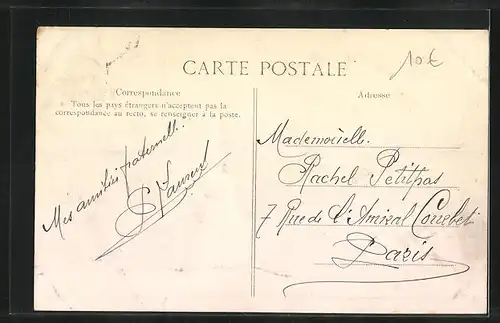 10€
CARTE POSTALE
Correspondance
Tous les pays étrangers n'acceptent pas la
correspondance au recto, se renseigner à la poste.
Mes amitiés fraternell..
Adresse
Mademoiselle.
Rachel Petitpas
7 Rue de l'Amiral Courbet
Paris